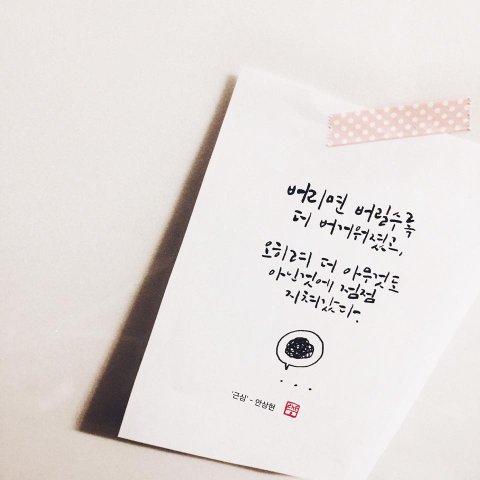 버리면 버릴수록
더 버거워졌고,
오히려 더 아무것도
아닌것에 점점
지쳐갔다.
...
'근심' - 안상현